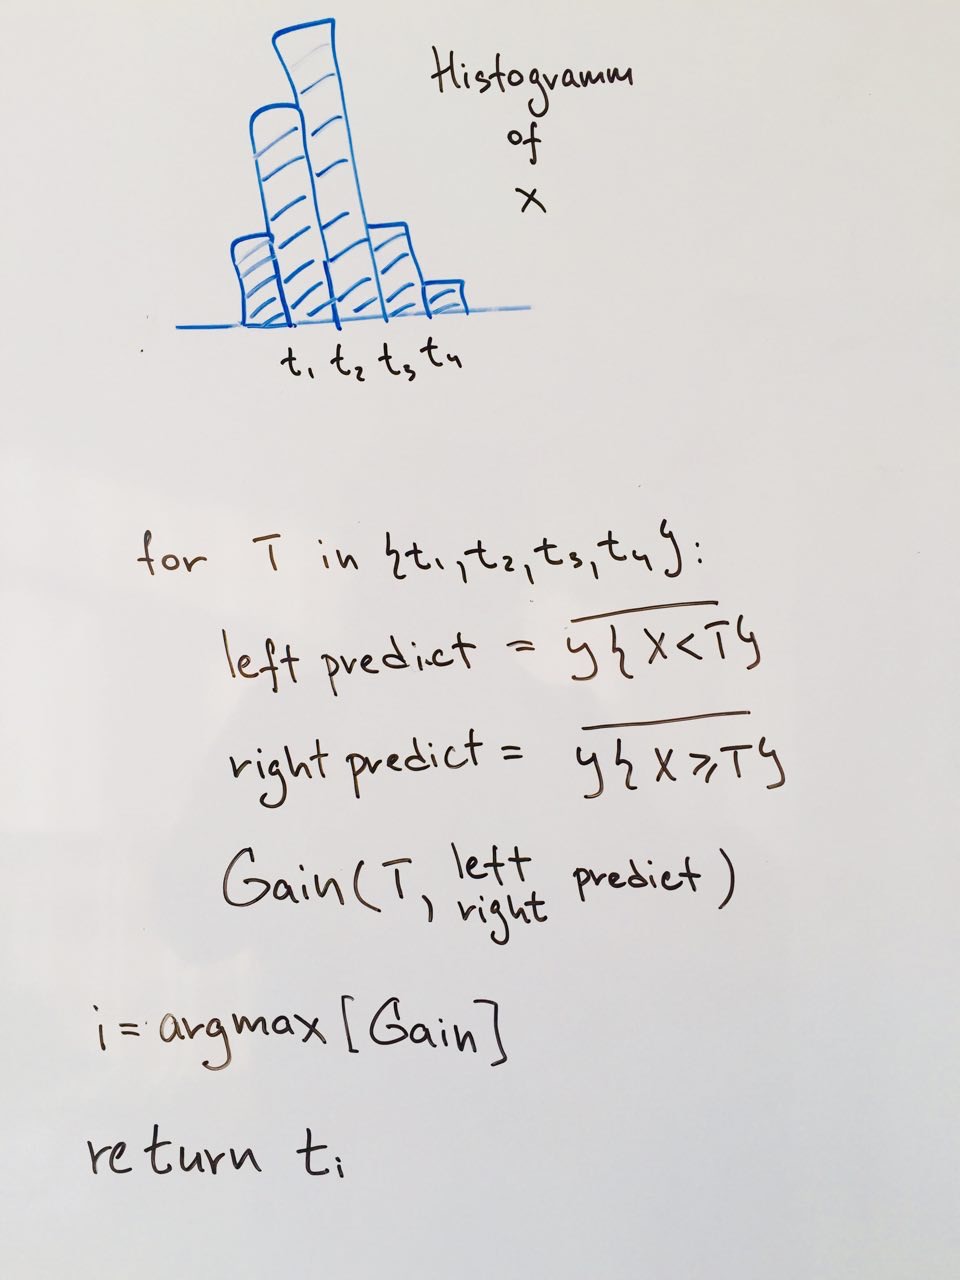 Histogramm
of
x
t₁ t₂ t₃ t₄
for T in {t₁,t₂,t₃,t₄}:
left predict = y̅{̅ ̅X̅<̅T̅}
right predict = y̅{̅ ̅X̅⩾̅T̅}
Gain(T, left right predict)
i = argmax [Gain]
return tᵢ